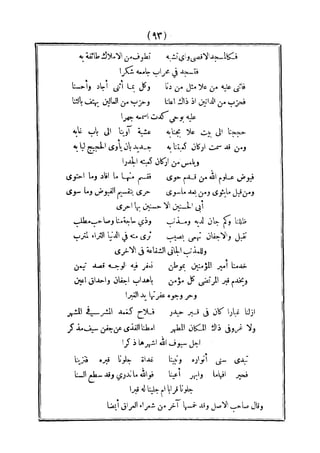 (٩٣)
فكالمسجد الاقصى واى تشبه تطوف من الاملاك طائفة به
فتسجد فى محراب جامعه شكرا
فاثنى عليه من علا مثل من دنا وكل بما أثنى أجاد وأحسنا
فحزب من الدانين اذ ذاك اعلنا وحزب من العالين يهتف بالثنا
عليه بوحى كدت اسمعه جهرا
حججنا الى بيت علا بجنابه عشية آوينا الى باب غابه
ومن قد سمت اركان كعبتنا به جدير بان يأوى الحجيج لبابه
ويلمس من اركان كعبته الجدرا
فيوض علوم الله من قدم حوى فقسم منها ما افاد وما احتوى
ومن قبل مايثوى ومن بعد ماثوى حرى بتقسيم الفيوض وما سوى
أبى الحسنين الاحسنين بها احرى
ظللنا وكم جان لديه ومذنب وذى حاجة منا وصاحب مطلب
نقبل والاجفان تهمى بصيب ثرى منه فى الدنيا الثراء لمترب
وللمذنب الجانى الشفاعة فى الاخرى
خدمنا أمير المؤمنين بموطن نعفر فيه لوجه قصد تيمن
ويخدم قبر المرتضى كل مؤمن باهداب اجفان واحداق اعين
وحر وجوه عفرتها يد الغبرا
ازلنا غبارا كان فى قبر حيدر فلاح كغمد المشرفى المشهر
ولا غرو فى ذاك المكان المطهر امطنا القذى عن جفن سيف مذكر
اجل سيوف الله اشهرها ذكرا
تبدى سنى أنواره وتبينا غداة جلونا قبره فتزينا
فحير افهاما وابهر أعينا فوالله ماندرى وقد سطع السنا
جلونا قرابا ام جلينا له قبرا
وقال صاحب الاصل وقد خمسها آخر من شعراء العراق أيضا